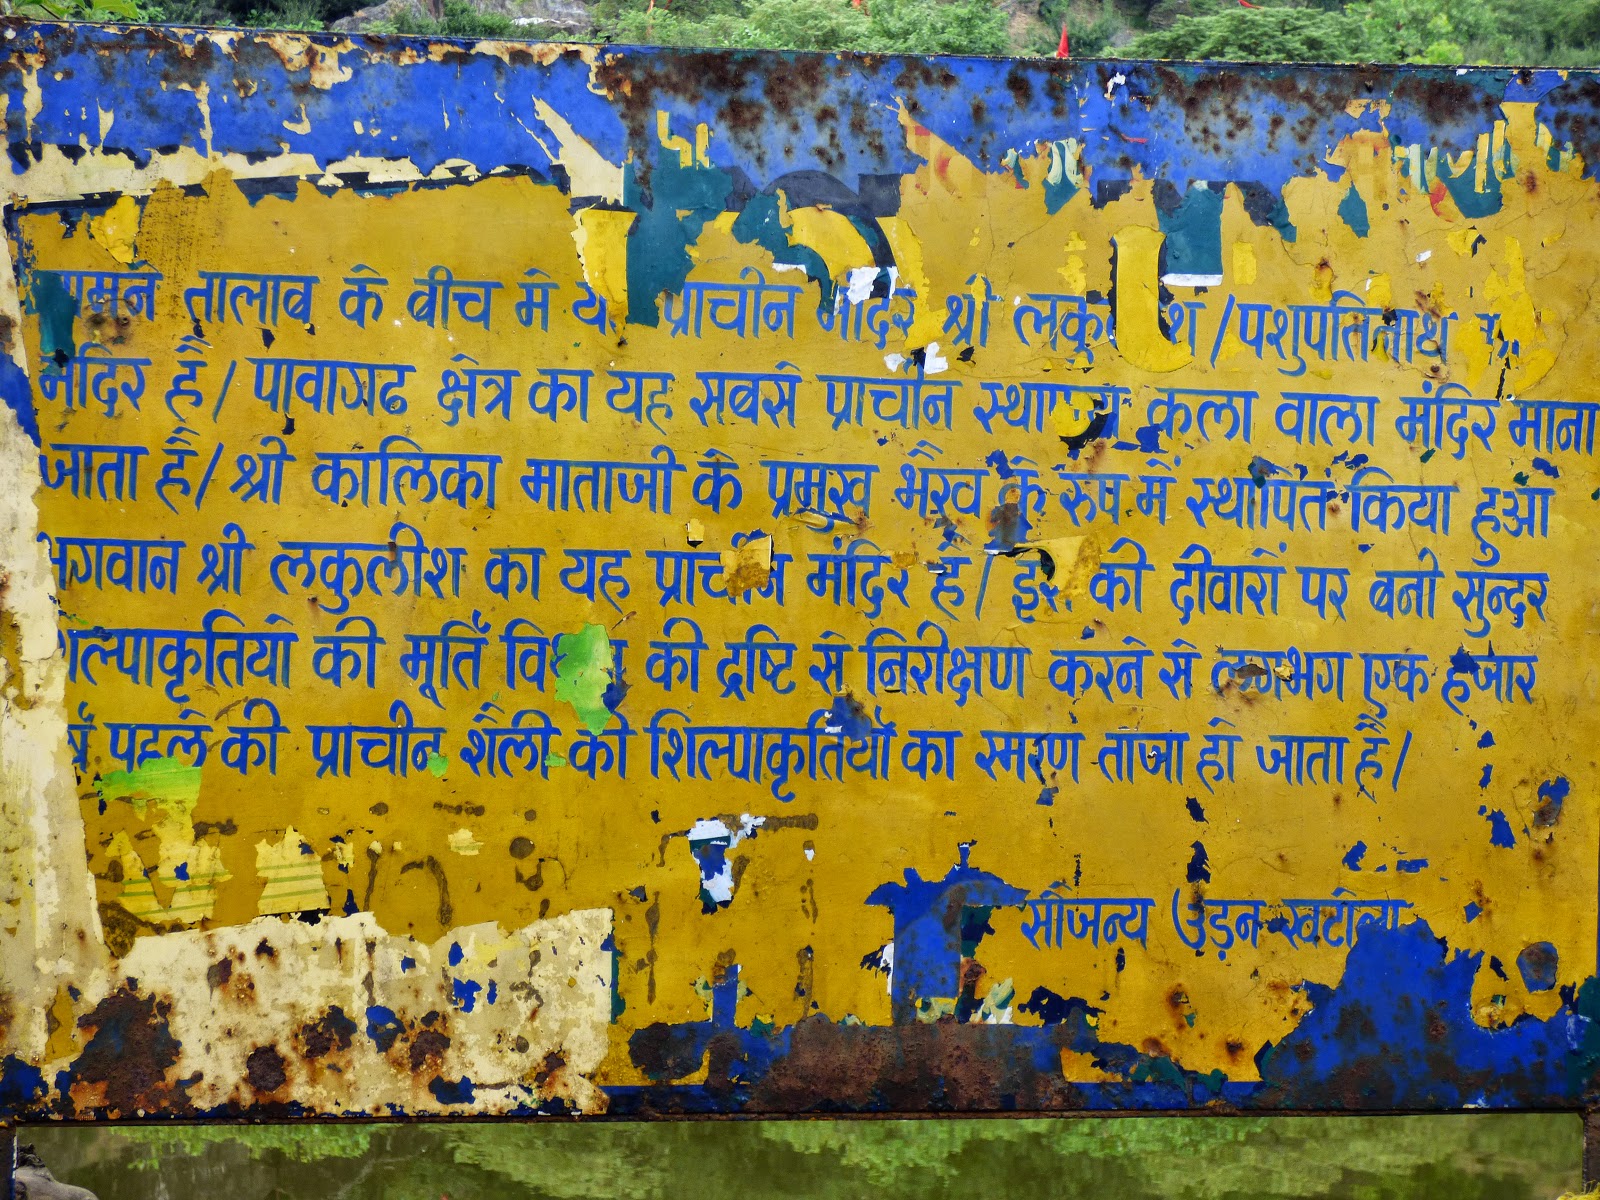 सामने तालाब के बीच मे प्राचीन मंदिर श्री /पशुपतिनाथ
मंदिर है/ पावागढ क्षेत्र का यह सबसे प्राचीन स्थापत्य कला वाला मंदिर माना
जाता है/ श्री कालिका माताजी के प्रमुख भैरव के रुप में स्थापित किया हुआ
भगवान श्री लकुलीश का यह प्राचीन मंदिर है/ इस की दीवारों पर बनी सुन्दर
शिल्पाकृतियो की मूर्ति की द्रष्टि से निरीक्षण करने से लगभग एक हजार
वर्ष पहले की प्राचीन शैली की शिल्पाकृतियों का स्मरण ताजा हो जाता है/
सौजन्य उड़न खटोला